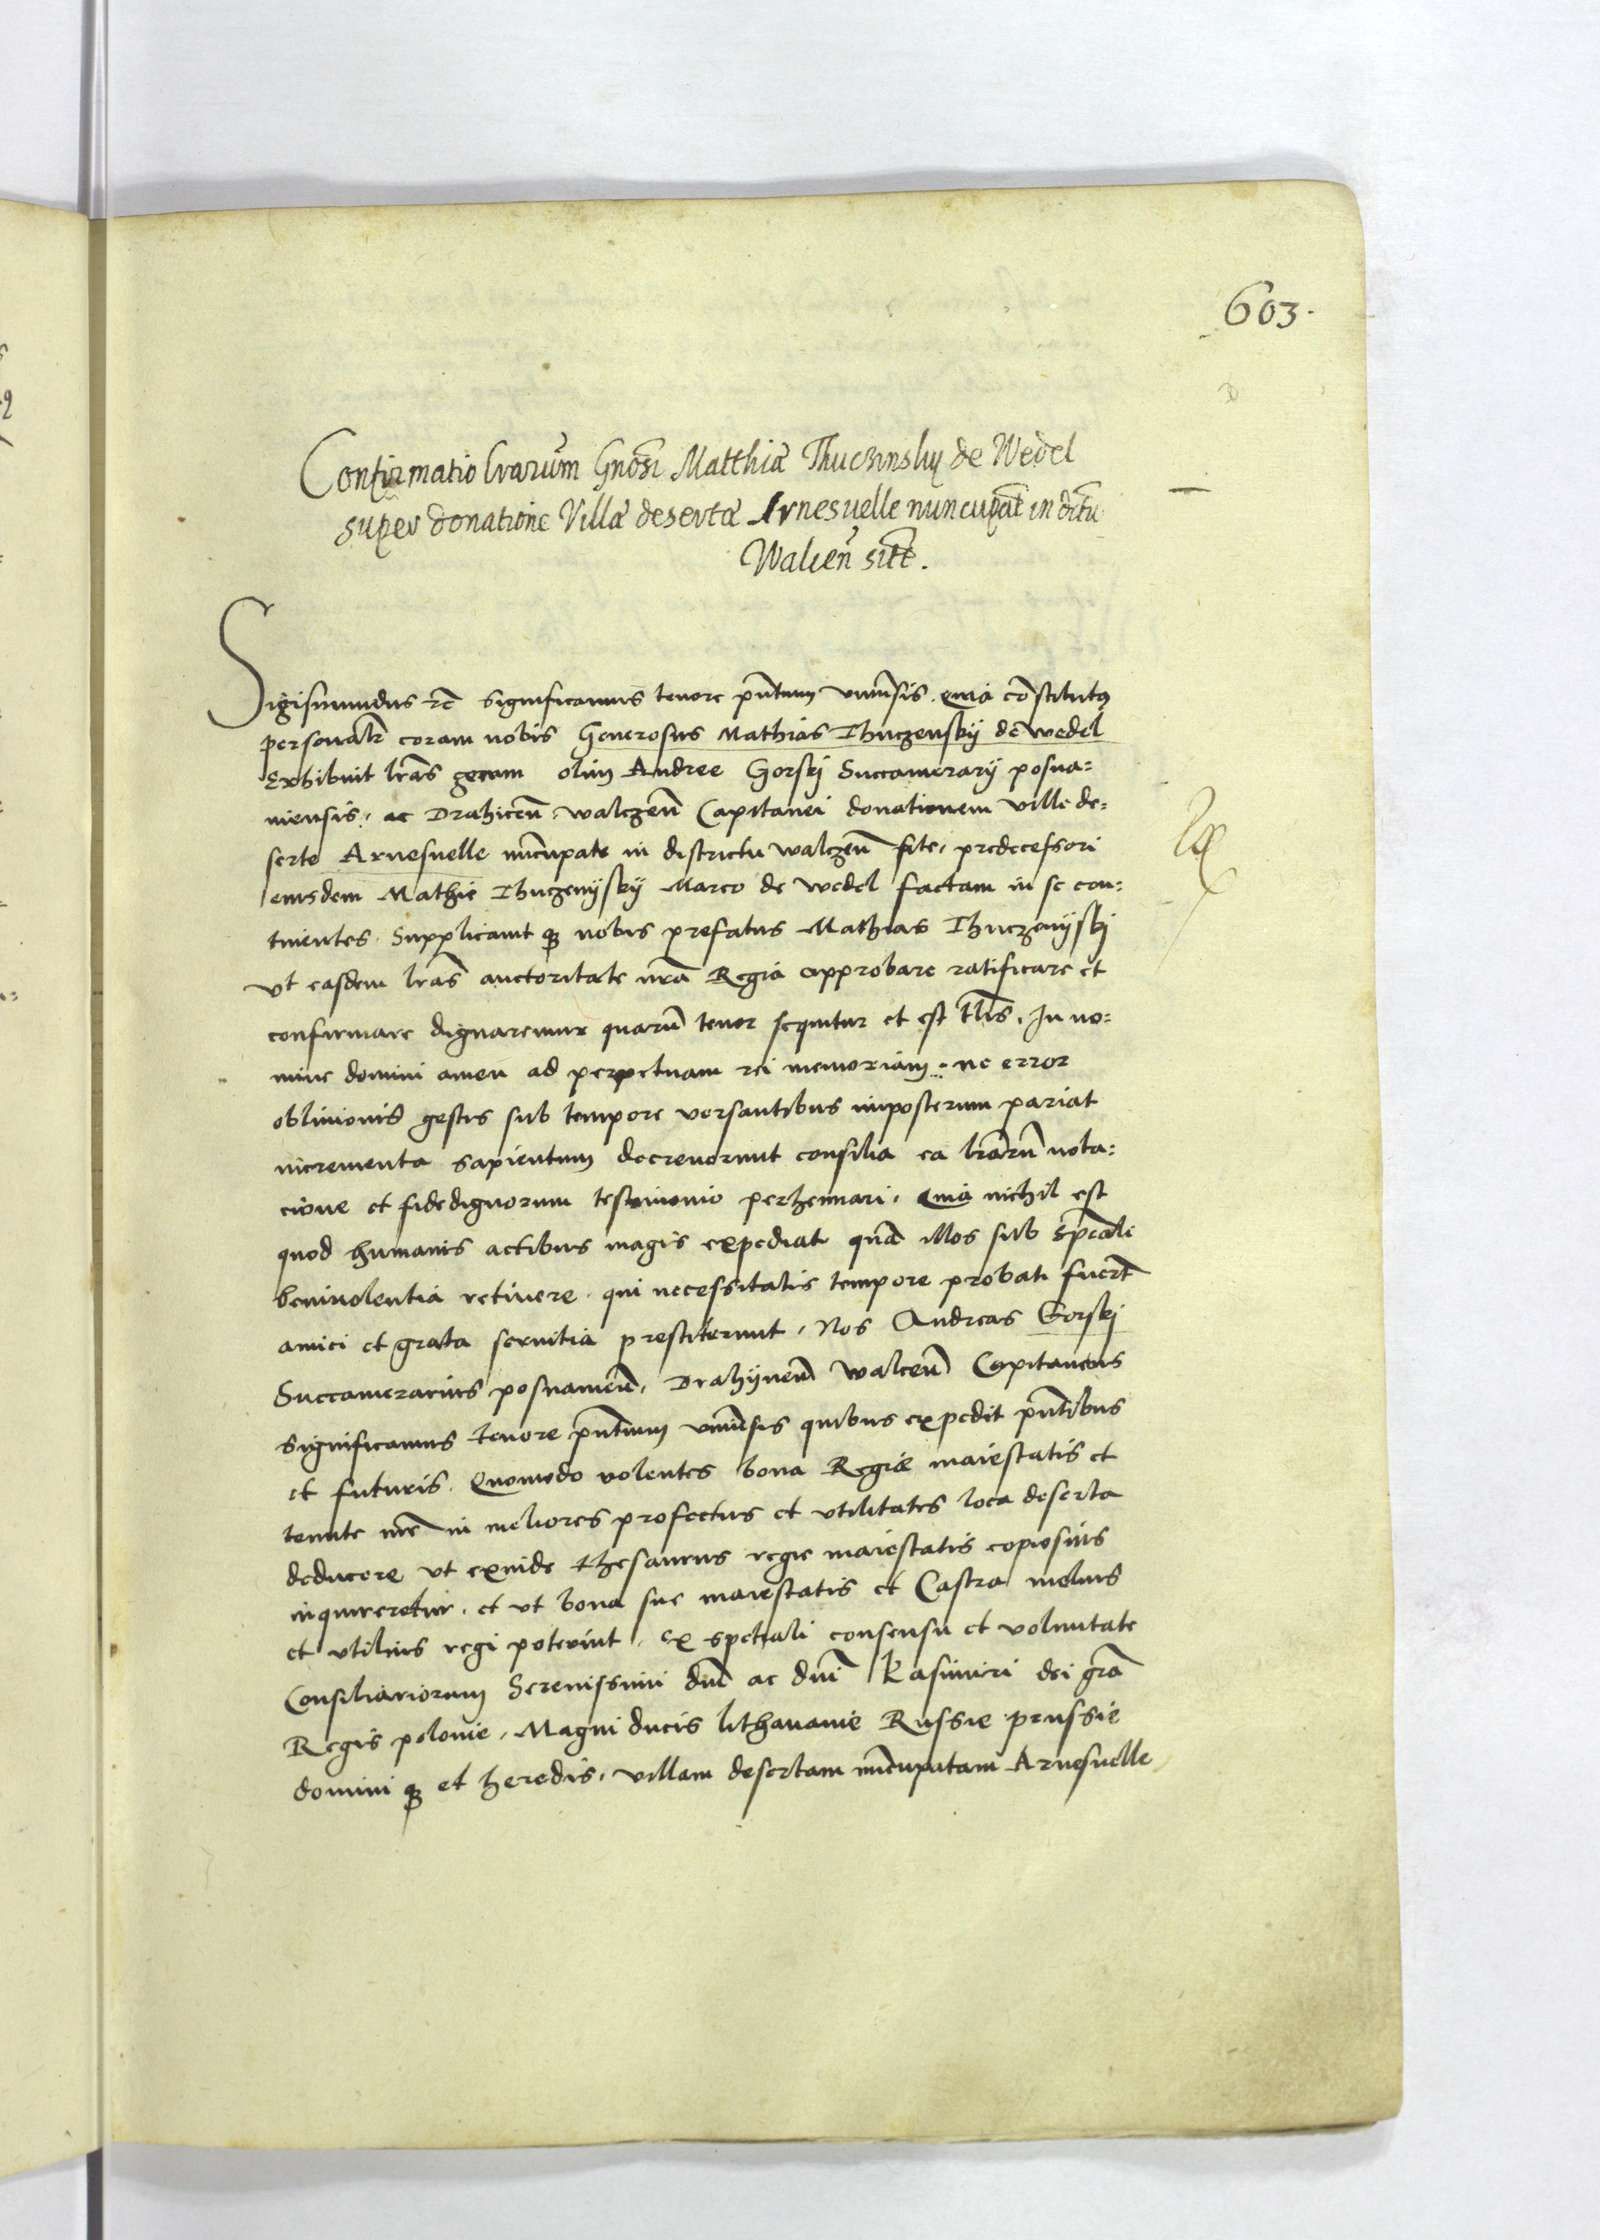 603.
Confirmatio lrarum Gnosi Matthiæ Thuczinsky de Wedel
super donatione Villæ desertæ Arnesuelle nuncupat in distu
Walcen site.
Sigismundus rc significamus tenore pntium vniuersis. Quia constitutus
personalr coram nobis Generosus Mathias Thuczensky de Wedel
Exhibuit lras olim Andree Gorskj Succamerarij posna=
niensis, ac Drahicen, walczen Capitanei donationem ville de=
serte Arnesuelle nuncupate in districtu walczen site, predecessori
eiusdem Mathie Thuczenijskÿ Marco de wedel factam in se con=
tinentes. Supplicauit q nobis prefatus Mathias Thuczenijskj
vt easdem lras auctoritate nra Regia approbare ratificare et
confirmare dignaremur quaru tenor sequitur et est tlis. In no=
mine domini amen ad perpetuam rei memoriam. ne error
obliuionis gestis sub tempore versantibus imposterum pariat
incrementa sapientum decreuerunt consilia ea lraru nota=
cione et fidedignorum testimonio perhennari, Quia nichil est
quod humanis actibus magis expediat qua illos sub speciale
beniuolentia retinere. qui necessitatis tempore probati fuert
amici et grata seruitia prestiterunt. Nos Andreas Gorskj
Succamerarius posnanien, Drahÿnen walcen Capitaneus
significamus tenore pntium vniuersis quibus expedit pntibus
et futuris. Quomodo volentes bona Regiæ maiestatis et
tenute nre in meliores profectus et vtilitates loca deserta
deducere vt exinde thesaurus regie maiestatis copiosius
inquireretur. et vt bona sue maiestatis et Castra melius
et vtilius regi poterint. Ex spetiali consensu et voluntate
Consiliariorum Serenissimi dni ac dni Kasimiri dei gra
Regis polonie, Magni ducis lithauanie Russie prussie
domini q et heredis, villam desertam nuncupatam Arnesuelle